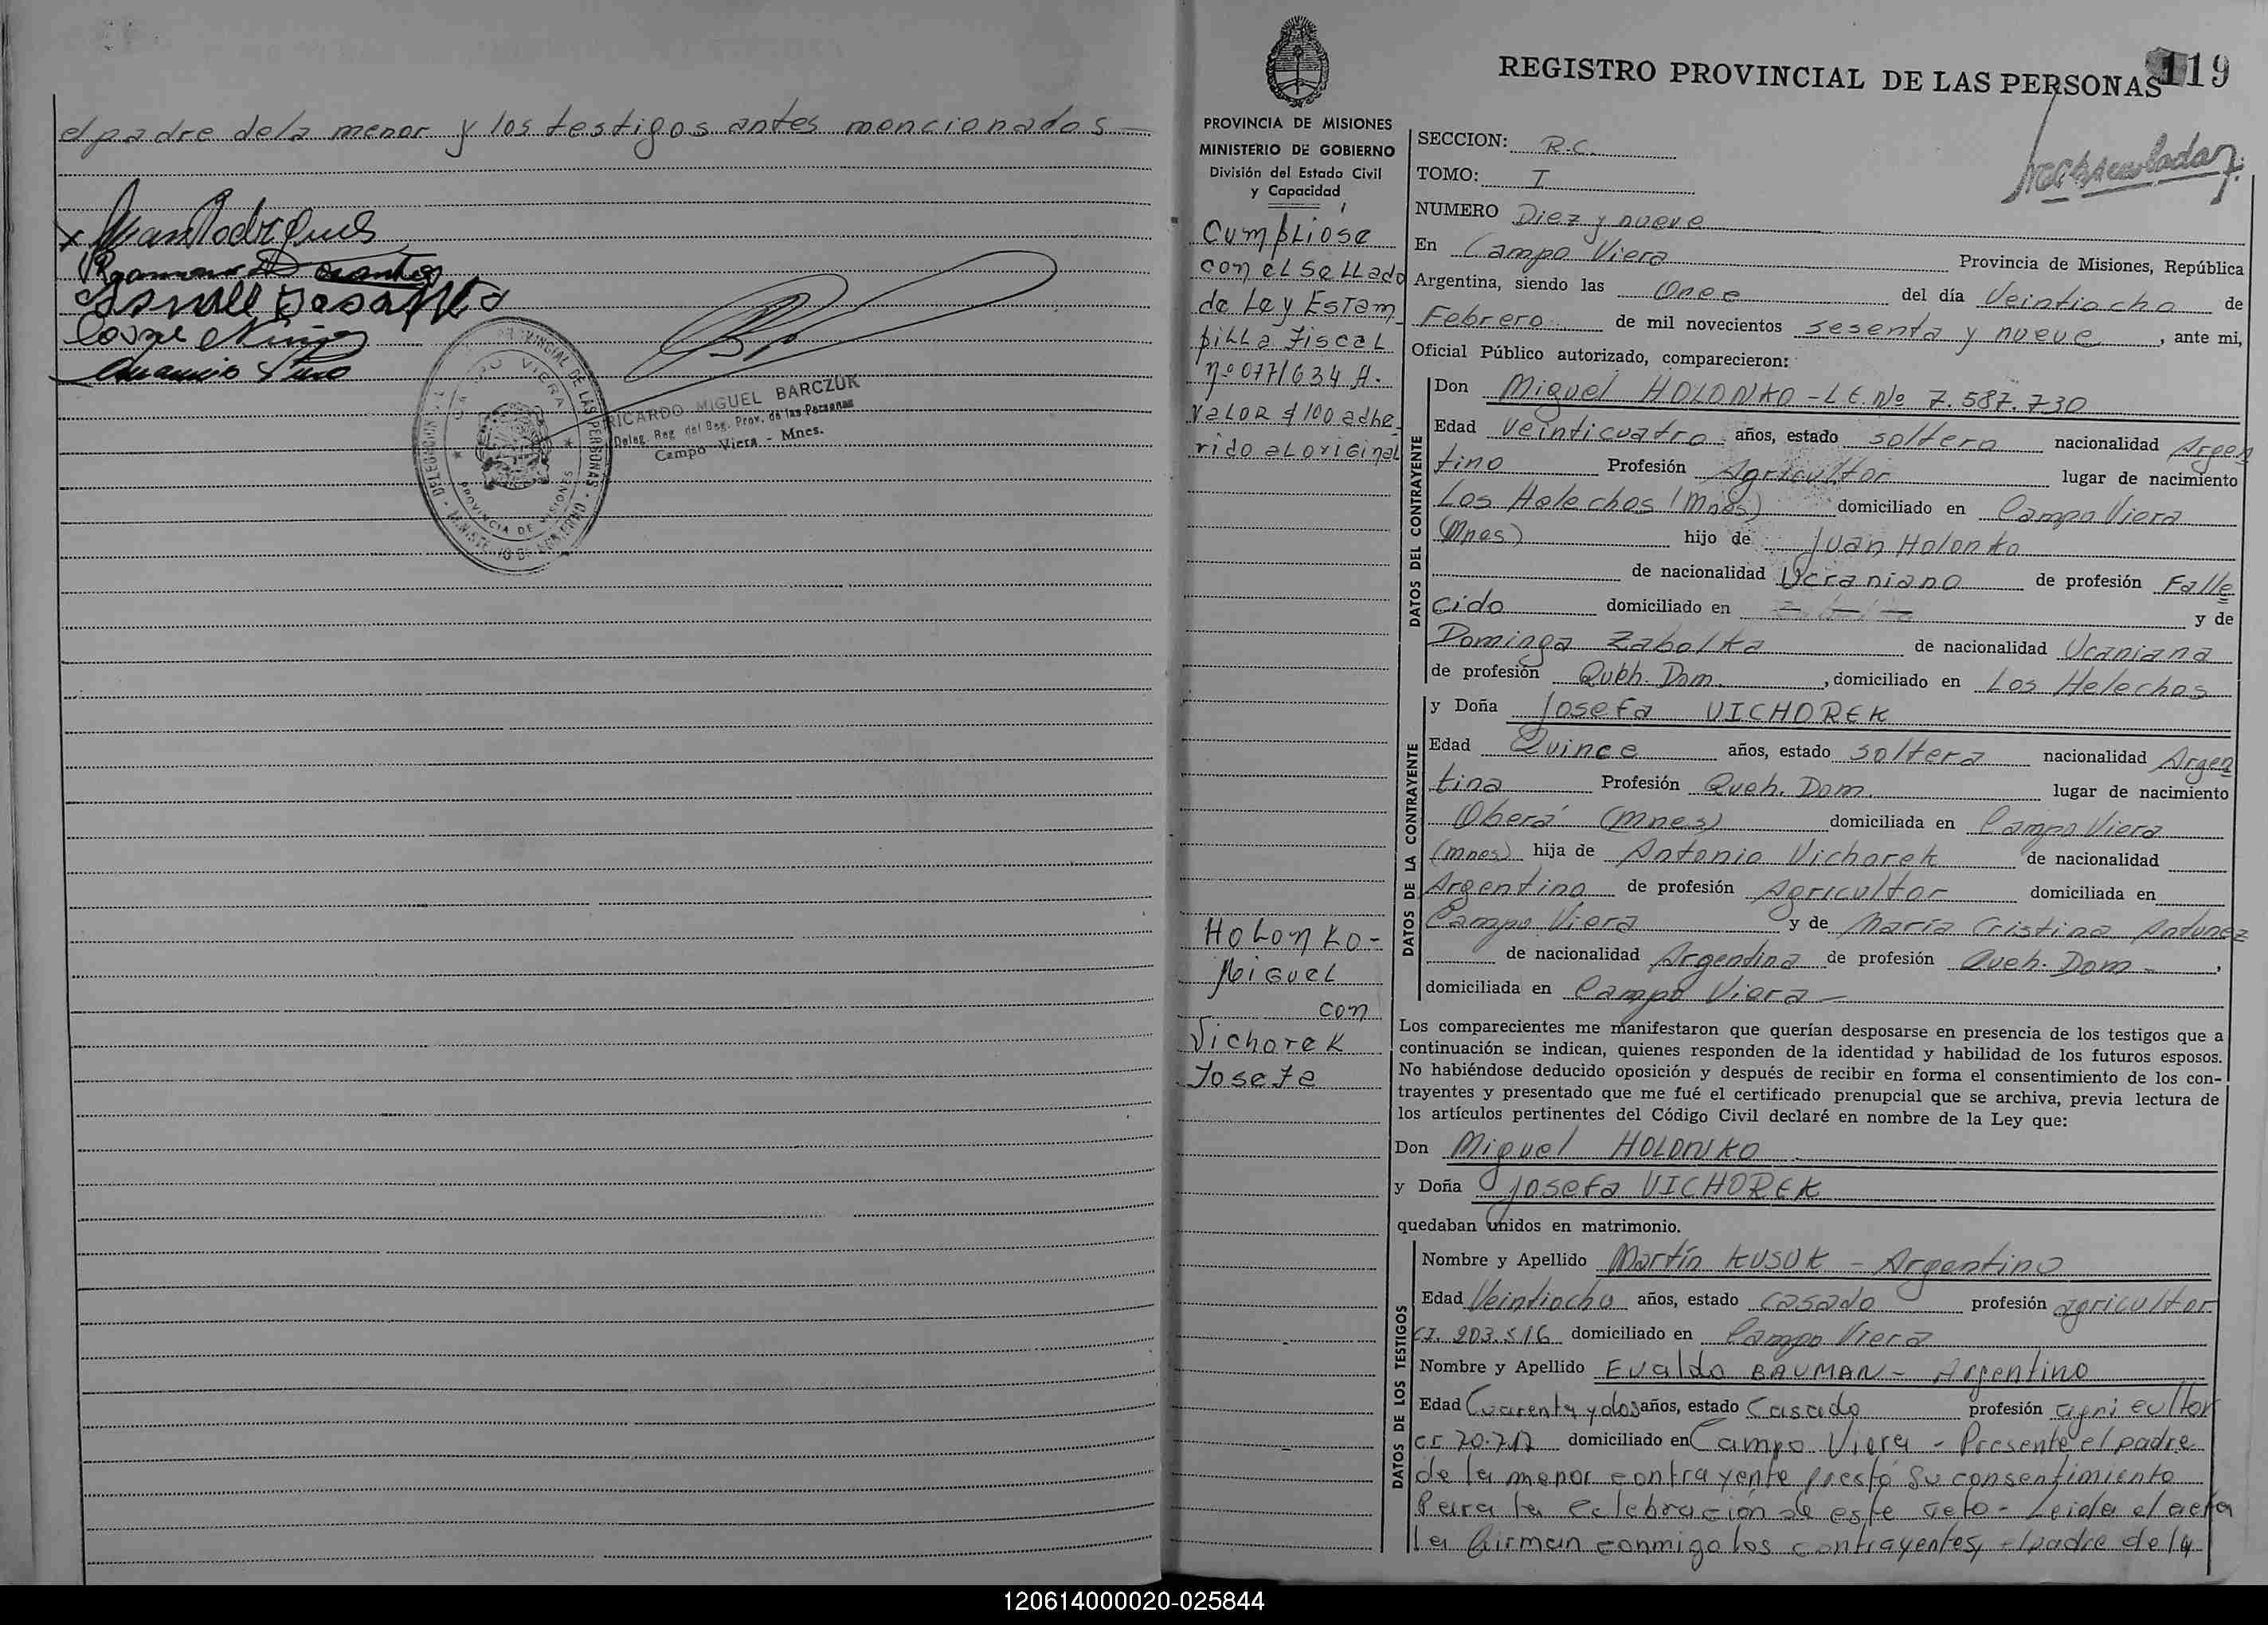 el padre dela menor y los testigos antes mencionados -
DELEGACION
PROVINCIAL DE LAS PERSONAS
CAMPO VIERA
PROVINCIA DE MISIONES
MINISTERIO DE GOBIERNO
RICARDO MIGUEL BARCZUK
Deleg. Reg. del Reg. Prov. de las Personas
Campo Viera - Mnes.
119
REGISTRO PROVINCIAL DE LAS PERSONAS
PROVINCIA DE MISIONES
MINISTERIO DE GOBIERNO
División del Estado Civil
y Capacidad
Cumpliose
con el sellado
de Ley Estam
pilla Fiscal
nº 0771634 A.
Valor $ 100 adhe
rido al original
Holonko-
Miguel
con
Vichorek
Josefa
SECCION: R.C.
TOMO: I
NUMERO Diez y nueve
En Campo Viera Provincia de Misiones, República
Argentina, siendo las Once del día Veintiocho de
Febrero de mil novecientos sesenta y nueve, ante mi,
Oficial Público autorizado, comparecieron:
DATOS DEL CONTRAYENTE
Don Miguel HOLONKO - L.E. Nº 7.587.730
Edad Veinticuatro años, estado soltero nacionalidad Argen
tino Profesión Agricultor lugar de nacimiento
Los Helechos (Mnes) domiciliado en Campo Viera
(Mnes) hijo de Juan Holonko
de nacionalidad Ucraniano de profesión Falle
cido domiciliado en - - - y de
Dominga Zabolka de nacionalidad Ucaniana
de profesión Queh. Dom. , domiciliado en Los Helechos
DATOS DE LA CONTRAYENTE
y Doña Josefa VICHOREK
Edad Quince años, estado soltera nacionalidad Argen
tina Profesión Queh. Dom. lugar de nacimiento
Oberá (Mnes) domiciliada en Campo Viera
(Mnes) hija de Antonio Vichorek de nacionalidad
Argentino de profesión Agricultor domiciliada en
Campo Viera y de María Cristina Antunez
de nacionalidad Argentina de profesión Queh. Dom - ,
domiciliada en Campo Viera -
Los comparecientes me manifestaron que querían desposarse en presencia de los testigos que a
continuación se indican, quienes responden de la identidad y habilidad de los futuros esposos.
No habiéndose deducido oposición y después de recibir en forma el consentimiento de los con-
trayentes y presentado que me fué el certificado prenupcial que se archiva, previa lectura de
los artículos pertinentes del Código Civil declaré en nombre de la Ley que:
Don Miguel HOLONKO
y Doña Josefa VICHOREK
quedaban unidos en matrimonio.
DATOS DE LOS TESTIGOS
Nombre y Apellido Martín KUSUK - Argentino
Edad Veintiocho años, estado casado profesión agricultor
CI. 203.516 domiciliado en Campo Viera
Nombre y Apellido Evaldo BAUMAN - Argentino
Edad Cuarenta y dos años, estado Casado profesión agricultor
CI 70.717 domiciliado en Campo Viera - Presente el padre
de la menor contrayente prestó su consentimiento
Para la celebración de este acto - Leida el acta
la firman conmigo los contrayentes, el padre de la
120614000020-025844